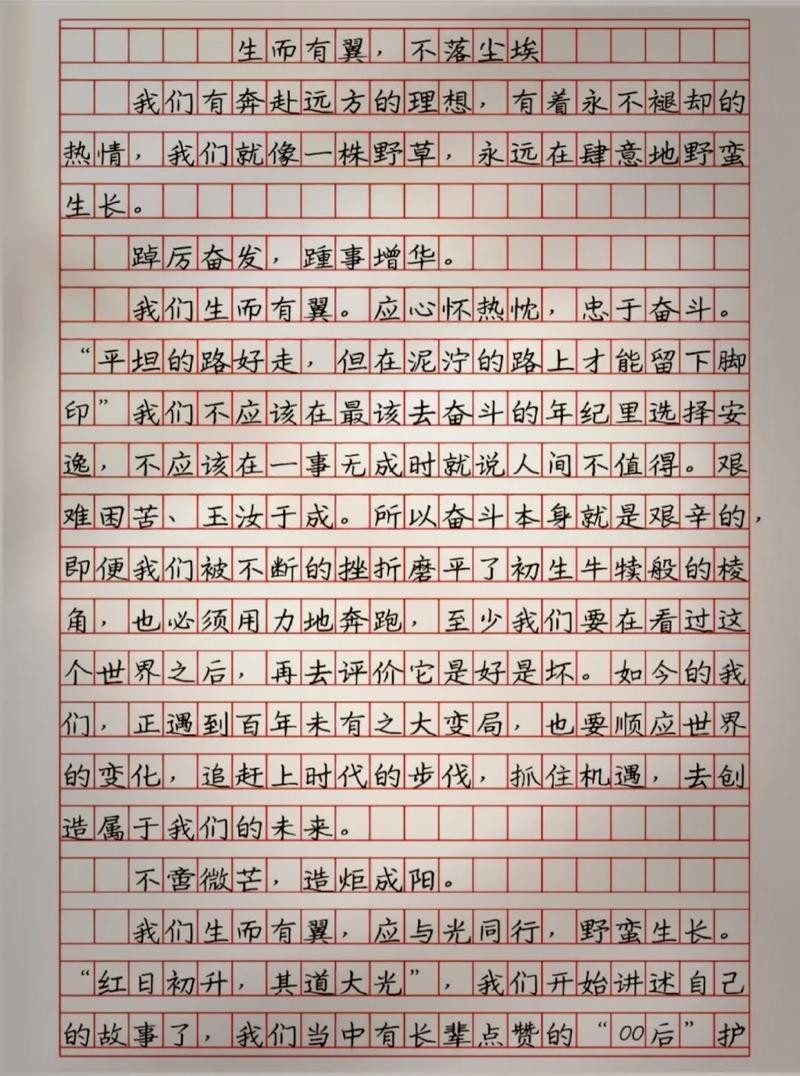 生而有翼，不落尘埃
我们有奔赴远方的理想，有着永不褪却的
热情，我们就像一株野草，永远在肆意地野蛮
生长。
踔厉奋发，踵事增华。
我们生而有翼。应心怀热忱，忠于奋斗。
“平坦的路好走，但在泥泞的路上才能留下脚
印”我们不应该在最该去奋斗的年纪里选择安
逸，不应该在一事无成时就说人间不值得。艰
难困苦、玉汝于成。所以奋斗本身就是艰辛的，
即便我们被不断的挫折磨平了初生牛犊般的棱
角，也必须用力地奔跑，至少我们要在看过这
个世界之后，再去评价它是好是坏。如今的我
们，正遇到百年未有之大变局，也要顺应世界
的变化，追赶上时代的步伐，抓住机遇，去创
造属于我们的未来。
不啻微芒，造炬成阳。
我们生而有翼，应与光同行，野蛮生长。
“红日初升，其道大光”，我们开始讲述自己
的故事了，我们当中有长辈点赞的“00后”护